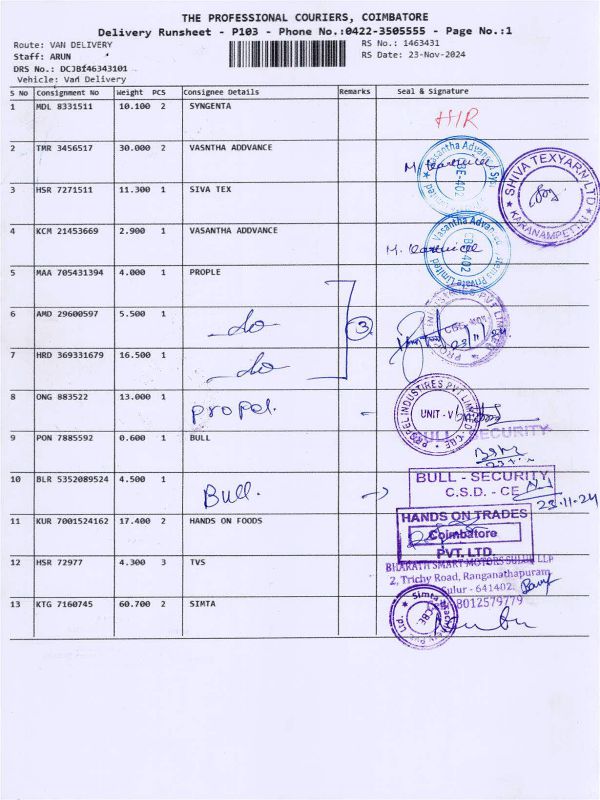 THE PROFESSIONAL COURIERS, COIMBATORE
Delivery Runsheet - P103 - Phone No.:0422-3505555 - Page No.:1
Route: VAN DELIVERY RS No.: 1463431
Staff: ARUN RS Date: 23-Nov-2024
DRS No.: DCJBI46343101
Vehicle: Van Delivery
S No Consignment No Weight PCS Consignee Details Remarks Seal & Signature
1 MDL 8331511 10.100 2 SYNGENTA HIR
2 TMR 3456517 30.000 2 VASNTHA ADDVANCE
3 HSR 7271511 11.300 1 SIVA TEX
SHIVA TEXYARN LTD
KARANAMPET
4 KCM 21453669 2.900 1 VASANTHA ADDVANCE
5 MAA 705431394 4.000 1 PROPLE
6 AMD 29600597 5.500 1 do 3
7 HRD 369331679 16.500 1 do
8 ONG 883522 13.000 1 propel.
PROPEL INDUSTRIES PVT LIMITED
UNIT - V
9 PON 7885592 0.600 1 BULL
BULL SECURITY
10 BLR 5352089524 4.500 1 Bull.
BULL - SECURITY
C.S.D. - CE
23.11.24
11 KUR 7001524162 17.400 2 HANDS ON FOODS
HANDS ON TRADES
Coimbatore
PVT. LTD.
12 HSR 72977 4.300 3 TVS
BHARATH SMART MOTORS SULUR LLP
2, Trichy Road, Ranganathapuram,
Sulur - 641402.
8012579779
13 KTG 7160745 60.700 2 SIMTA